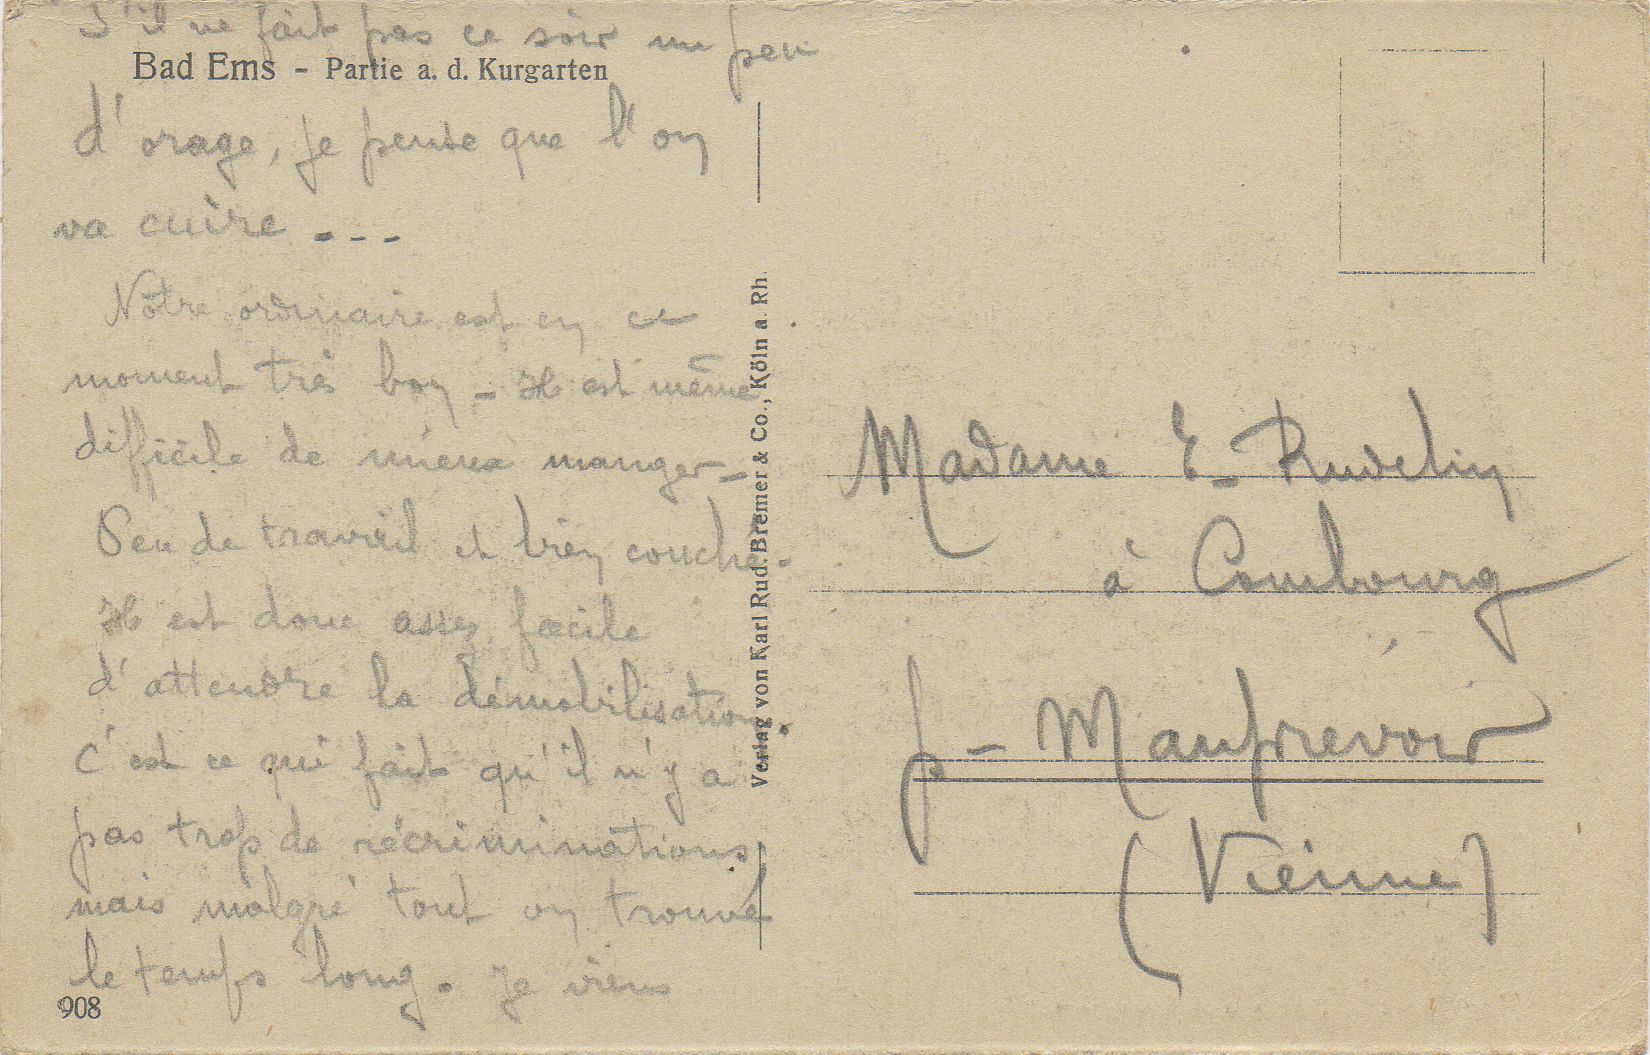 S'il ne fait pas ce soir un peu
Bad Ems - Partie a. d. Kurgarten
d'orage, je pense que l'on
va cuire ...
Notre ordinaire est en ce
moment très bon - Il est même
difficile de mieux manger -
Peu de travail et bien couché -
Il est donc assez facile
d'attendre la démobilisation.
C'est ce qui fait qu'il n'y a
pas trop de récriminations,
mais malgré tout on trouve
le temps long. Je viens
908
Verlag von Karl Rud. Bremer & Co., Köln a. Rh.
Madame E. Rudelin
à Combourg
p - Mauprevoir
(Vienne)